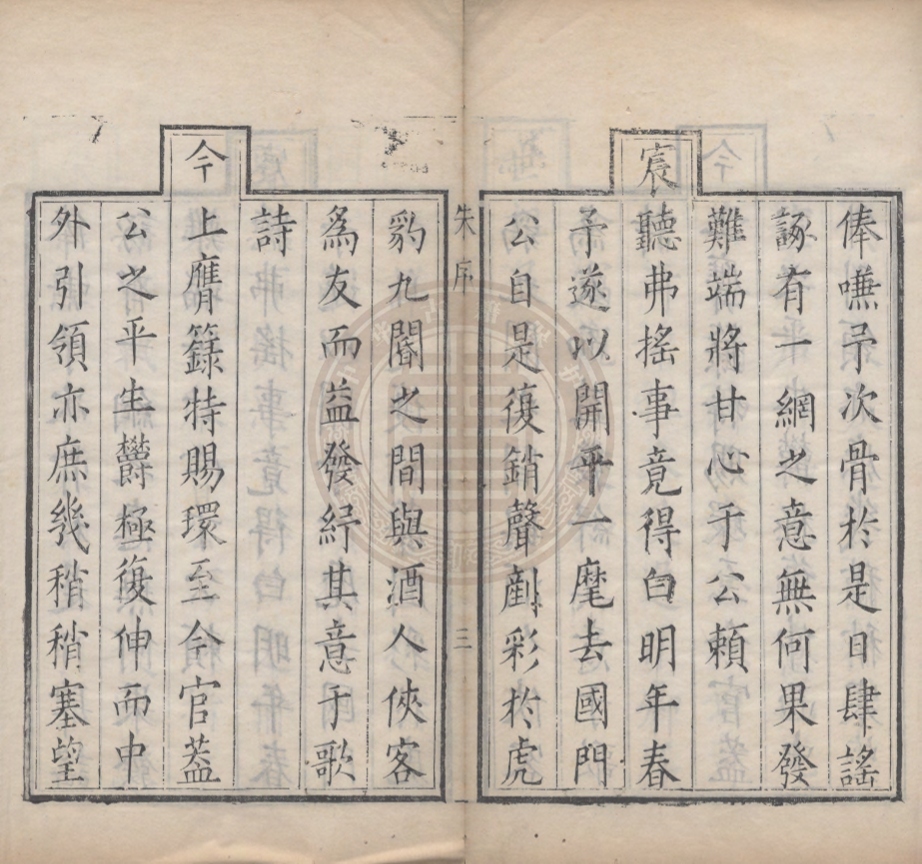 俸嚥予次骨於是日肆謠
諑有一網之意無何果發
難端將甘心于公賴
宸
聽弗搖事竟得白明年春
予遂以開平一麾去國門
公自是復銷聲剷彩於虎
朱序
三
豹九閽之間與酒人俠客
為友而益發紓其意于歌
詩
今
上膺籙特賜環至今官蓋
公之平生欝極復伸而中
外引領亦庶幾稍稍塞望